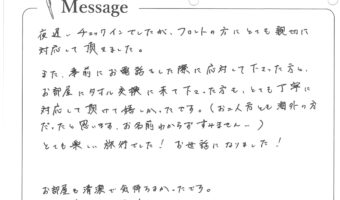 Message
夜遅いチェックインでしたが、フロントの方にとても親切に
対応して頂きました。
また、事前にお電話をした際に応対して下さった方も、
お部屋にタオル交換に来て下さった方も、とても丁寧に
対応して頂けて嬉しかったです。(お二人共とも海外の方
だったと思います、お名前わからずすみません…)
とても楽しい旅行でした! お世話になりました!
お部屋も清潔で気持ちよかったです。